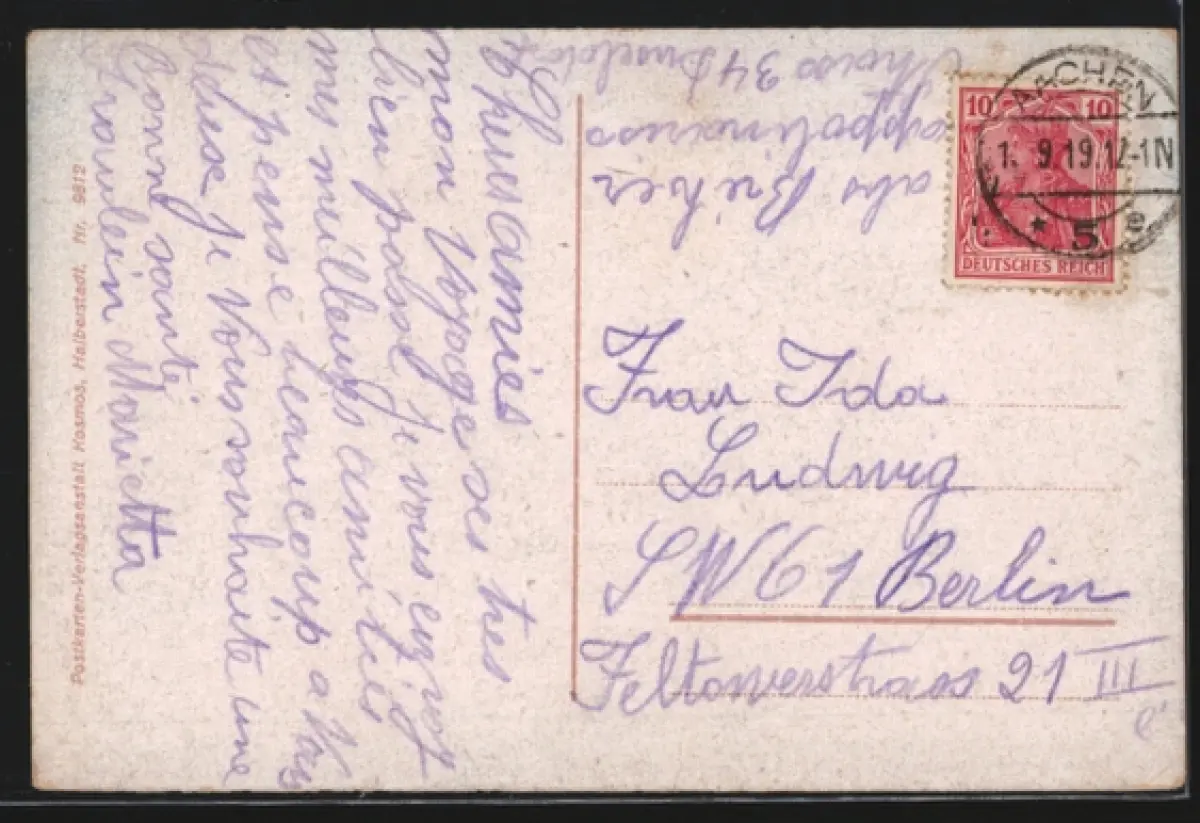 Chers amies
mon Voyage ses tres
bien passé Je vous envoi
mes meilleurs amitiés
et pense beaucoup a Vous
deux Je Vous souhaite une
bonne santé
Fraulein Marietta
abs Breher
Appolinariss
34 Dusseldorf
AACHEN
1. 9.19.12-1N
* 5 e
10 10
DEUTSCHES REICH
Frau Ida
Ludwig
SW61 Berlin
Teltowerstrass 21 III
Postkarten-Verlagsanstalt Kosmos, Halberstadt. Nr. 9812